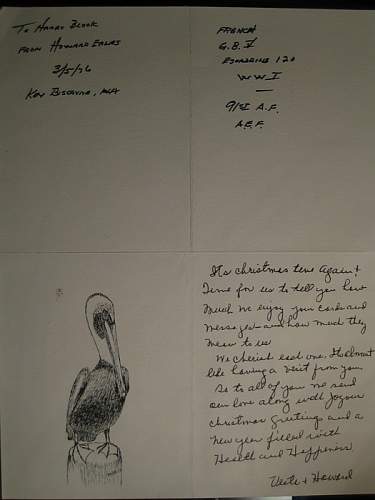 To Harry Block
From Howard Ehlers
3/5/76
Key Biscayne, FLA
French
G.B. V
Escadrille 120
WWI
—
91st A.F.
A.E.F.
It's christmas time again &
Time for us to tell you how
much we enjoy your cards and
messages and how much they
mean to us
We cherish each one. It's almost
like having a visit from you.
So to all of you we send
our love along with joyous
christmas greetings and a
new year filled with
Health and Happiness
& Howard